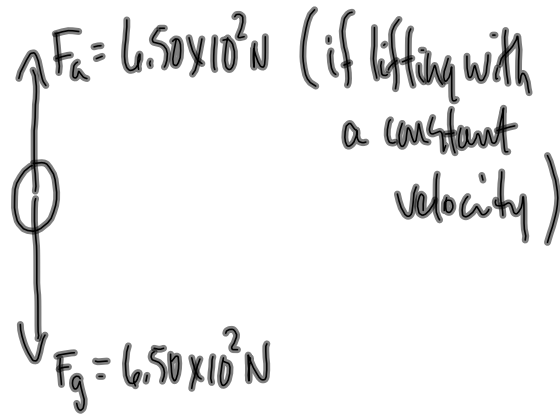 Fₐ = 6.50x10² N (if lifting with
a constant
velocity)
F_g = 6.50x10² N